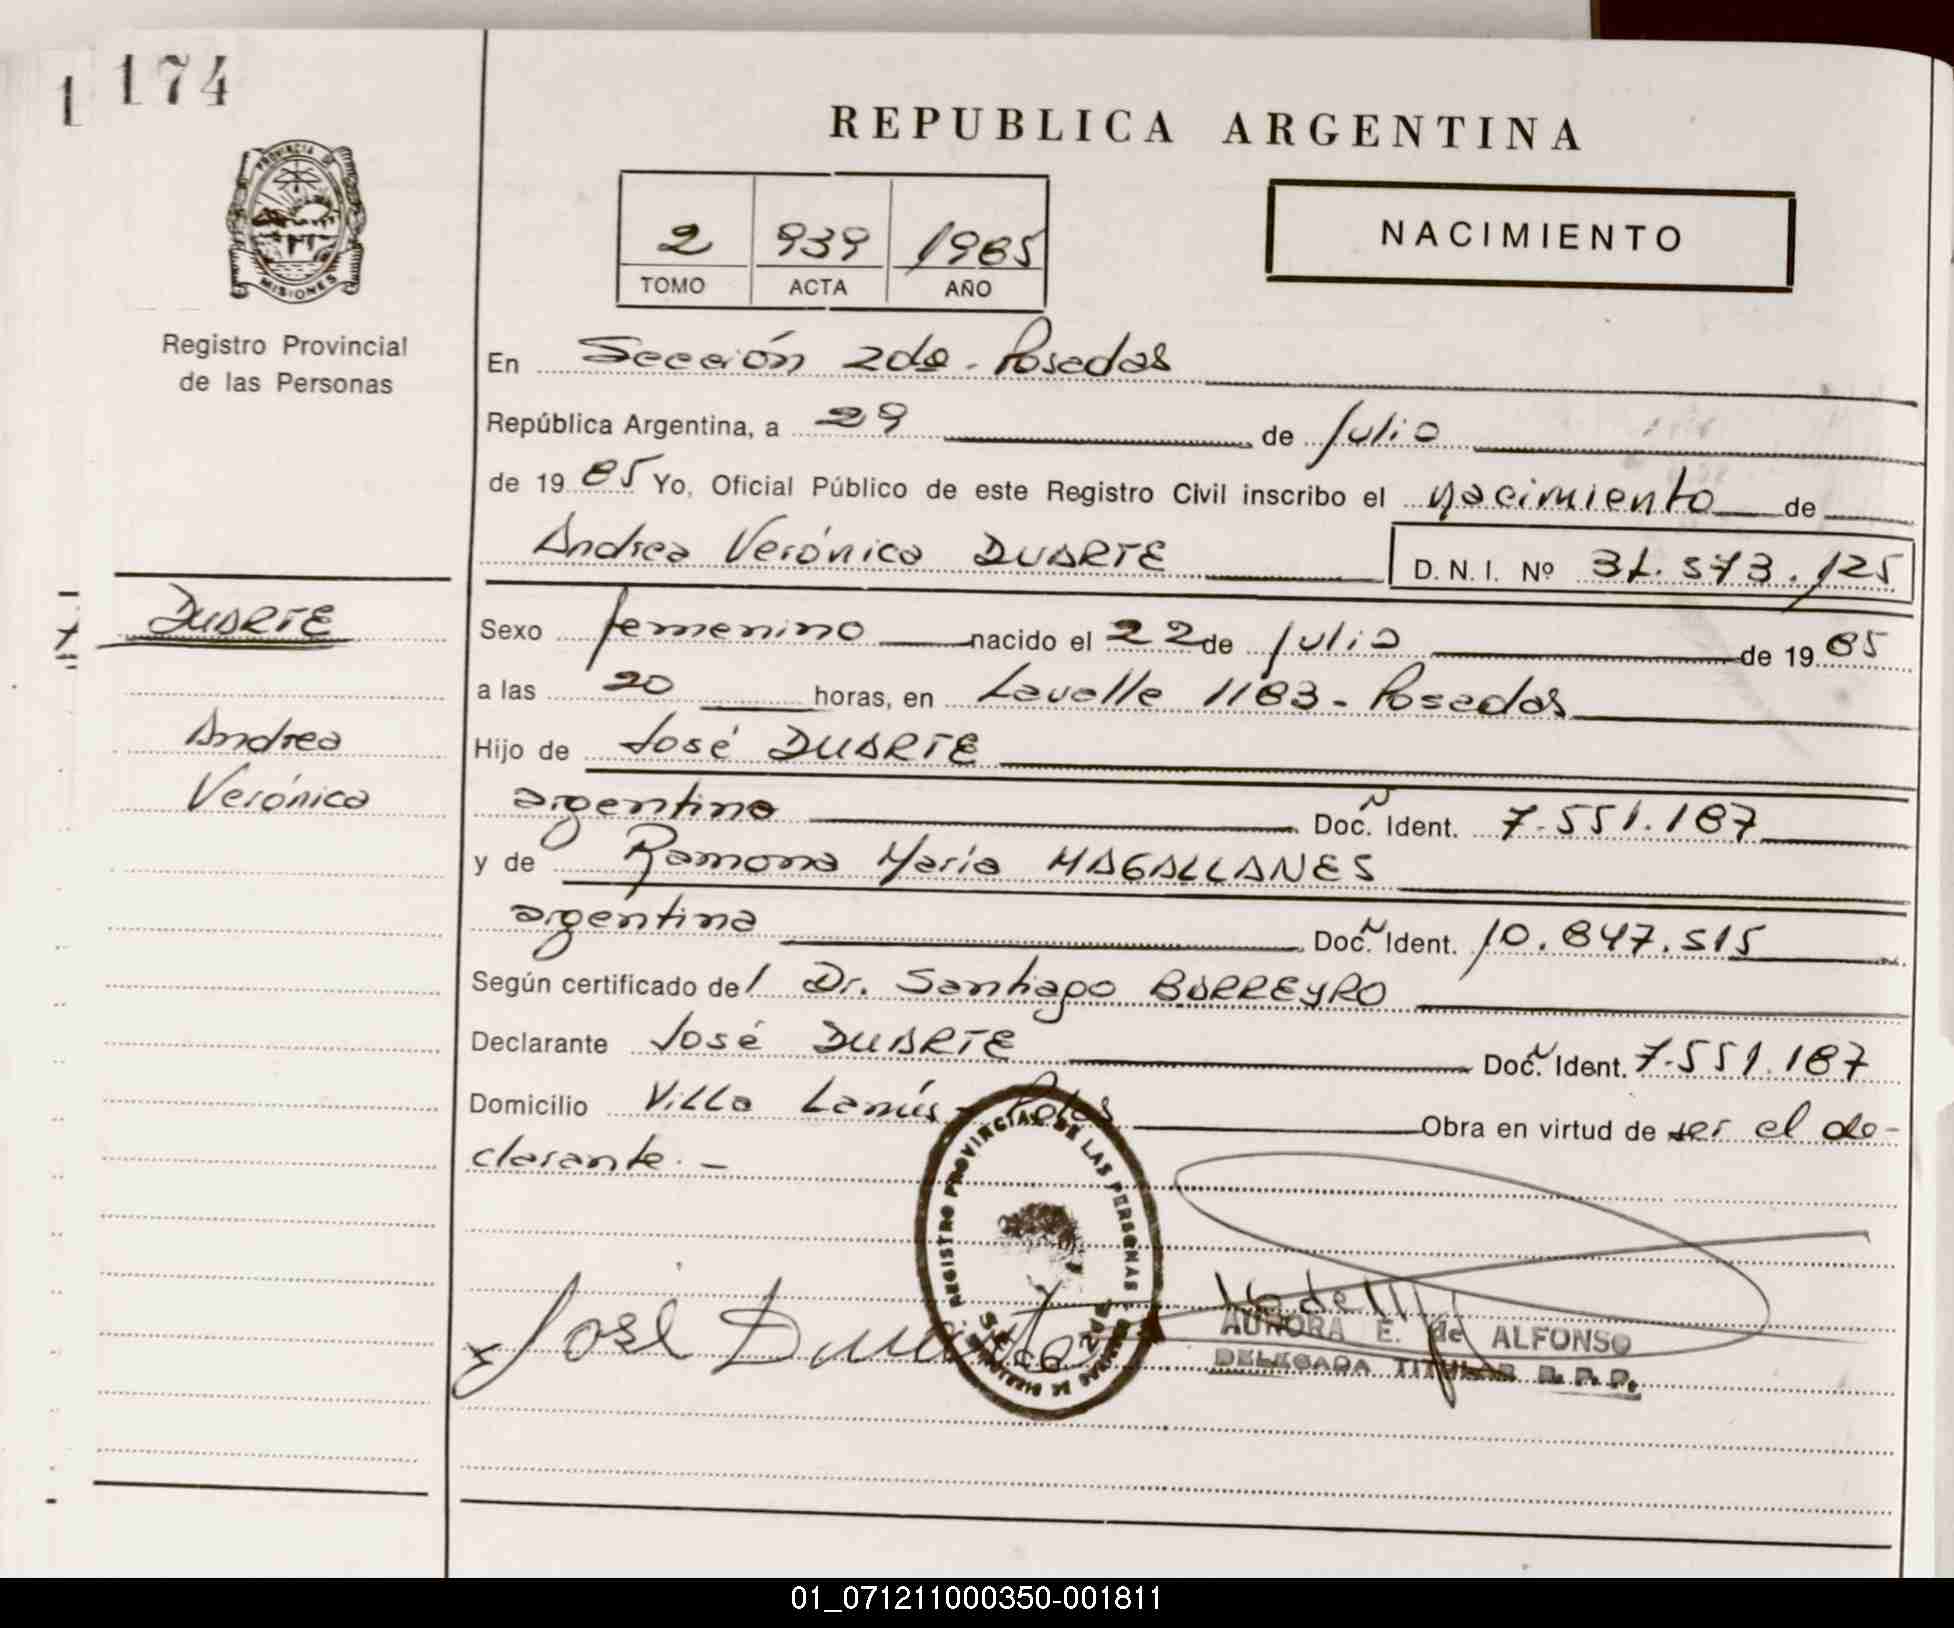 1 174
REPUBLICA ARGENTINA
PROVINCIA DE
MISIONES
2 939 1985
TOMO ACTA AÑO
NACIMIENTO
Registro Provincial
de las Personas
En Sección 2da - Posadas
República Argentina, a 29 de Julio
de 1985 Yo, Oficial Público de este Registro Civil inscribo el nacimiento de
Andrea Verónica DUARTE D. N. I. Nº 31.573.125
DUARTE
Sexo femenino nacido el 22 de Julio de 1985
a las 20 horas, en Lavalle 1183 - Posadas
Andrea
Hijo de José DUARTE
Verónica
argentino Doc. Ident. 7.551.187
y de Ramona María MAGALLANES
argentina Doc. Ident. 10.847.515
Según certificado del Dr. Santiago BARREYRO
Declarante José DUARTE Doc. Ident. 7.551.187
Domicilio Villa Lanús - Pdas Obra en virtud de ser el de-
clarante. -
REGISTRO PROVINCIAL DE LAS PERSONAS
José Duarte
AURORA E. de ALFONSO
DELEGADA TITULAR R. P. P.
01_071211000350-001811